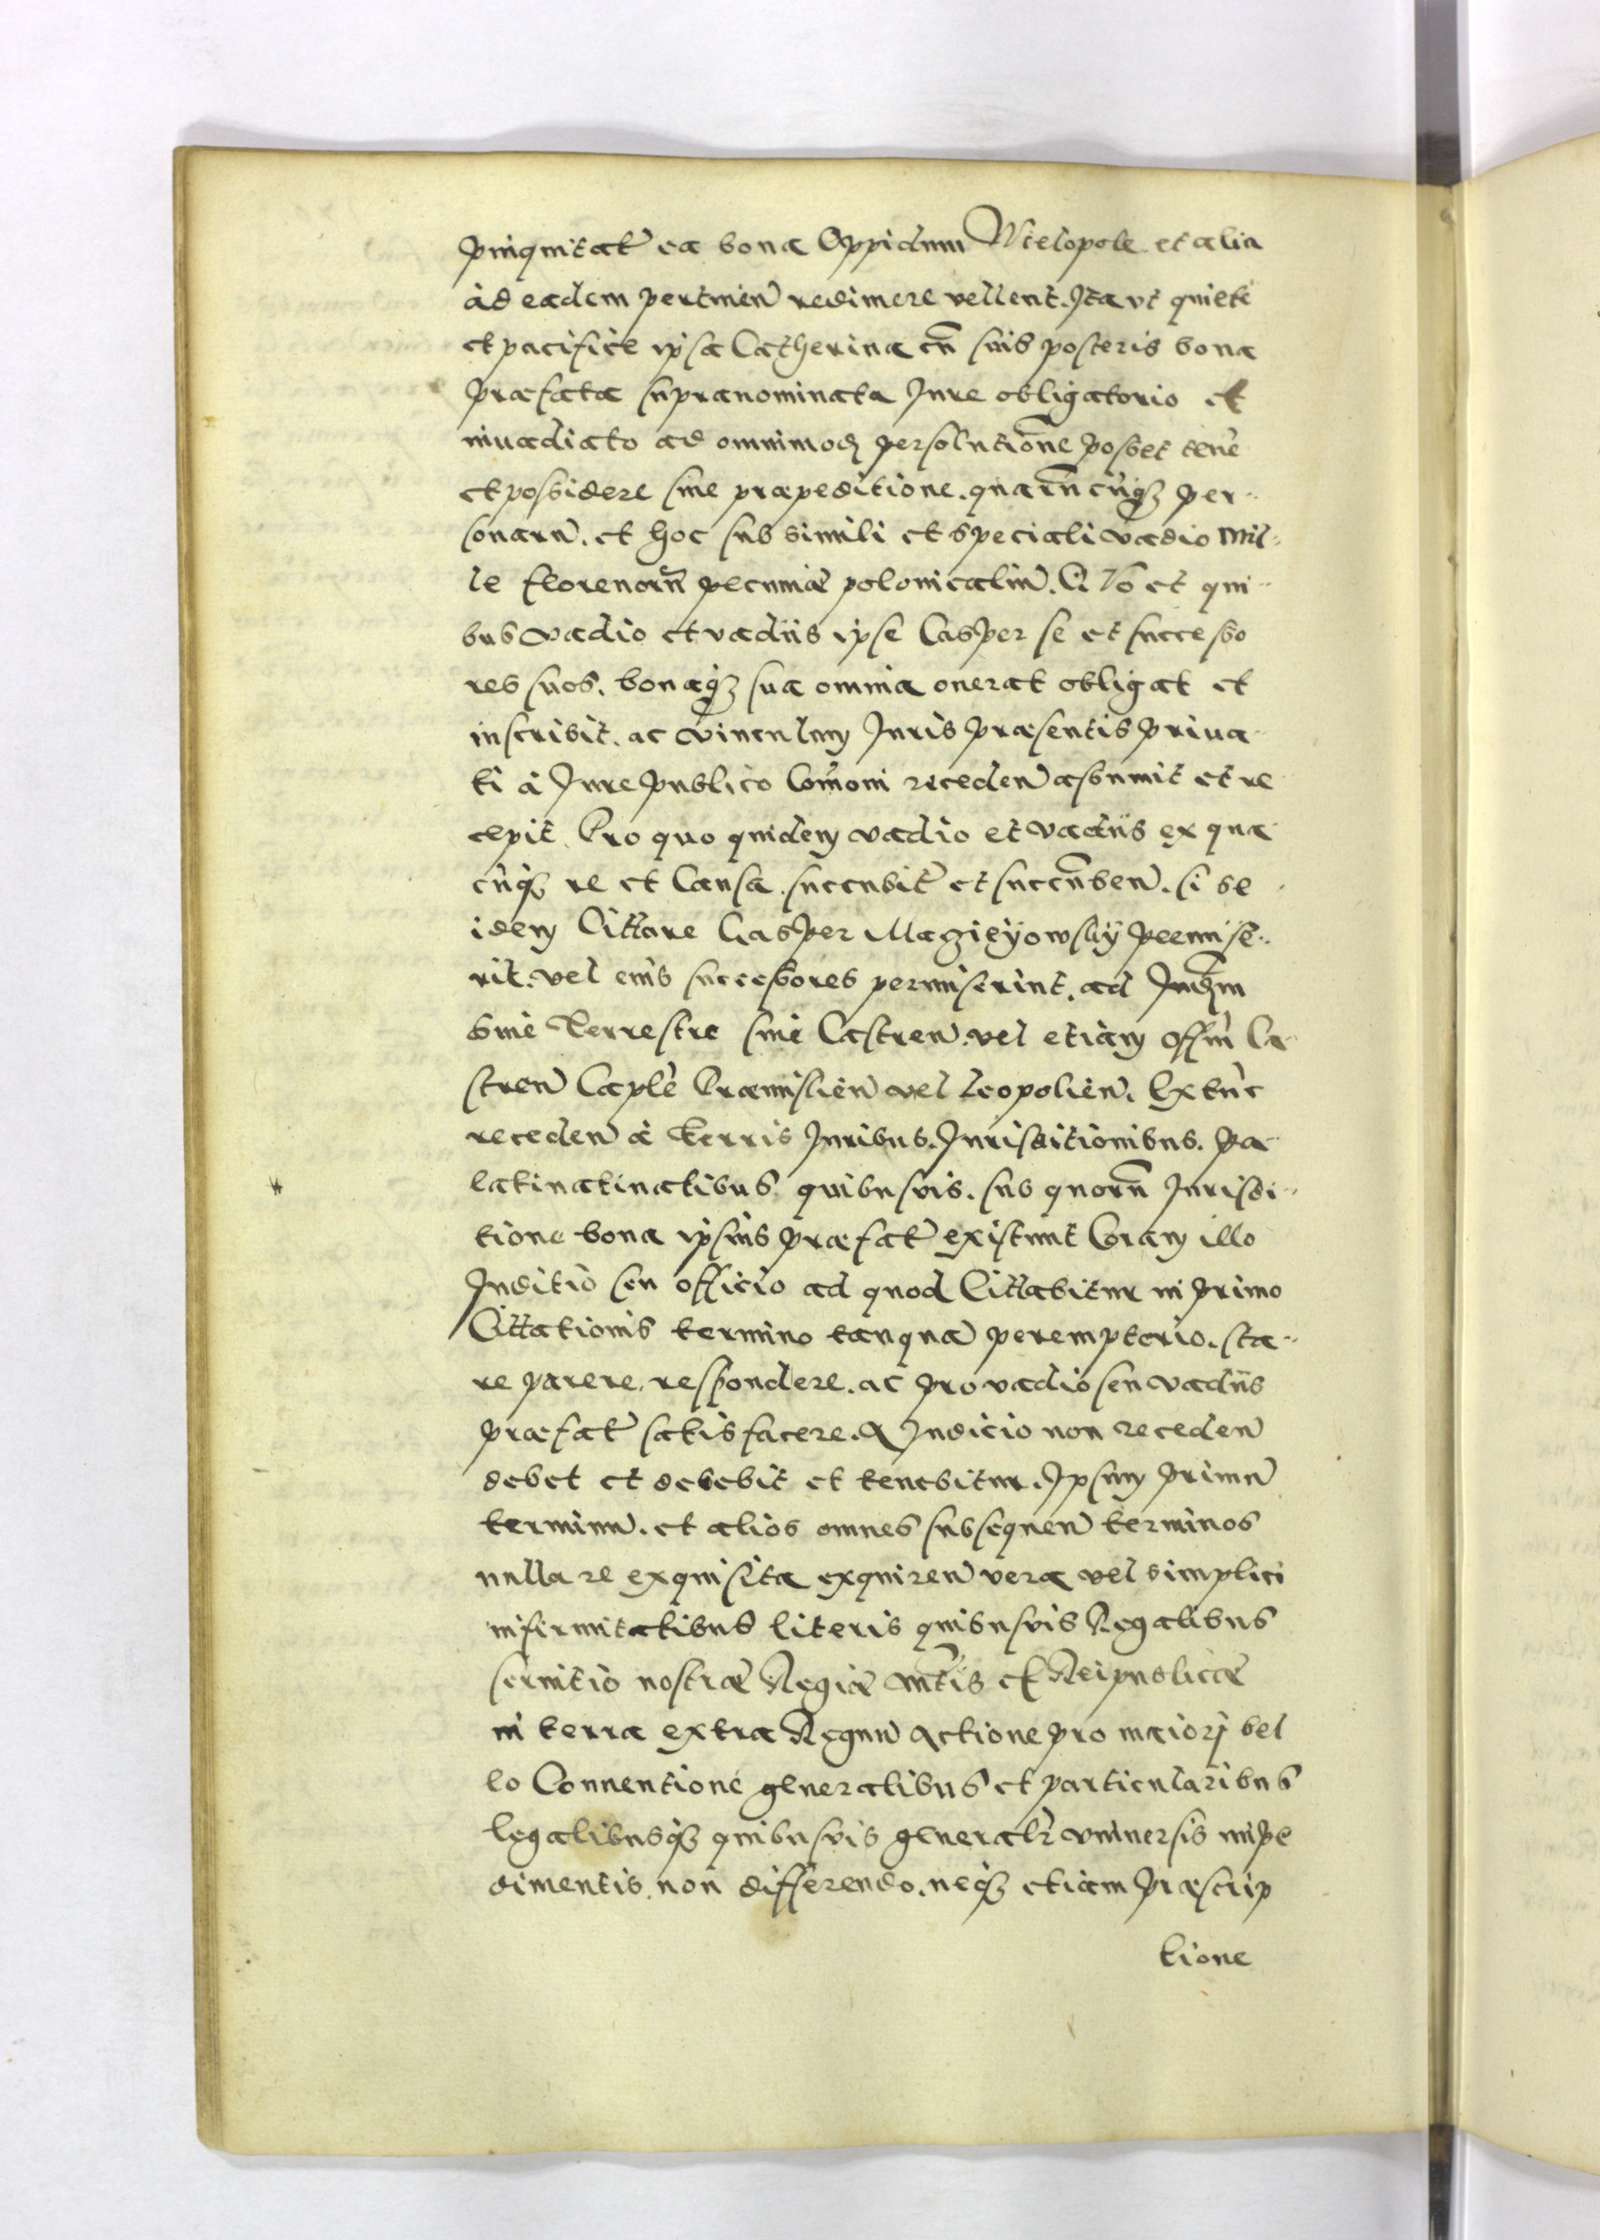 pinquitat ea bona Oppidum Wielopole et alia
ad eadem pertinen redimere vellent. Ita vt quiete
et pacifice ipsa Catherina cu suis posteris bona
præfata supranominata Jure obligatorio et
inuadiato ad omnimod persolutione posset tene
et possidere sine præpeditione. quarucunq per-
sonaru. et hoc sub simili et speciali vadio Mil-
le florenoru pecuniæ polonicaliu. A Vo et qui-
bus vadio et vadiis ipse Casper se et successo
res suos. bonaq sua omnia onerat obligat et
inscribit. ac vinculum Juris præsentis priua-
ti à Jure publico Comoni receden assumit et re
cepit. Pro quo quidem vadio et vadiis ex qua
cunq re et Causa. succubit et succuben. si se
idem Cittare Casper Magieÿowskÿ permise-
rit. vel eius successores permiserint. ad Judm
siue Terrestre siue Castren. vel etiam offm Ca-
stren Caple Præmislien vel Leopolien. Extuc
receden à terris Juribus. Jurisditionibus. Pa-
latinatinatibus quibusvis. sub quoru Jurisdi-
tione bona ipsius præfat existunt Coram illo
Juditio seu officio ad quod Cittabitur in primo
Cittationis termino tanqua peremptorio. sta-
re parere. respondere. ac pro vadio seu vadiis
præfat satisfacere. A Judicio non receden
debet et debebit et tenebitur. Ipsum primu
terminu. et alios omnes subsequen terminos
nulla re exquisita exquiren vera vel simplici
infirmitatibus literis quibusvis Regalibus
seruitio nostræ Regiæ Mtis et Reipublicæ
in terra extra Regnu actione pro maiorj bel
lo Conuentione generalibus et particularibus
legalibusq quibusvis generalr vniuersis impe
dimentis non differendo. neq etiam præscrip
tione